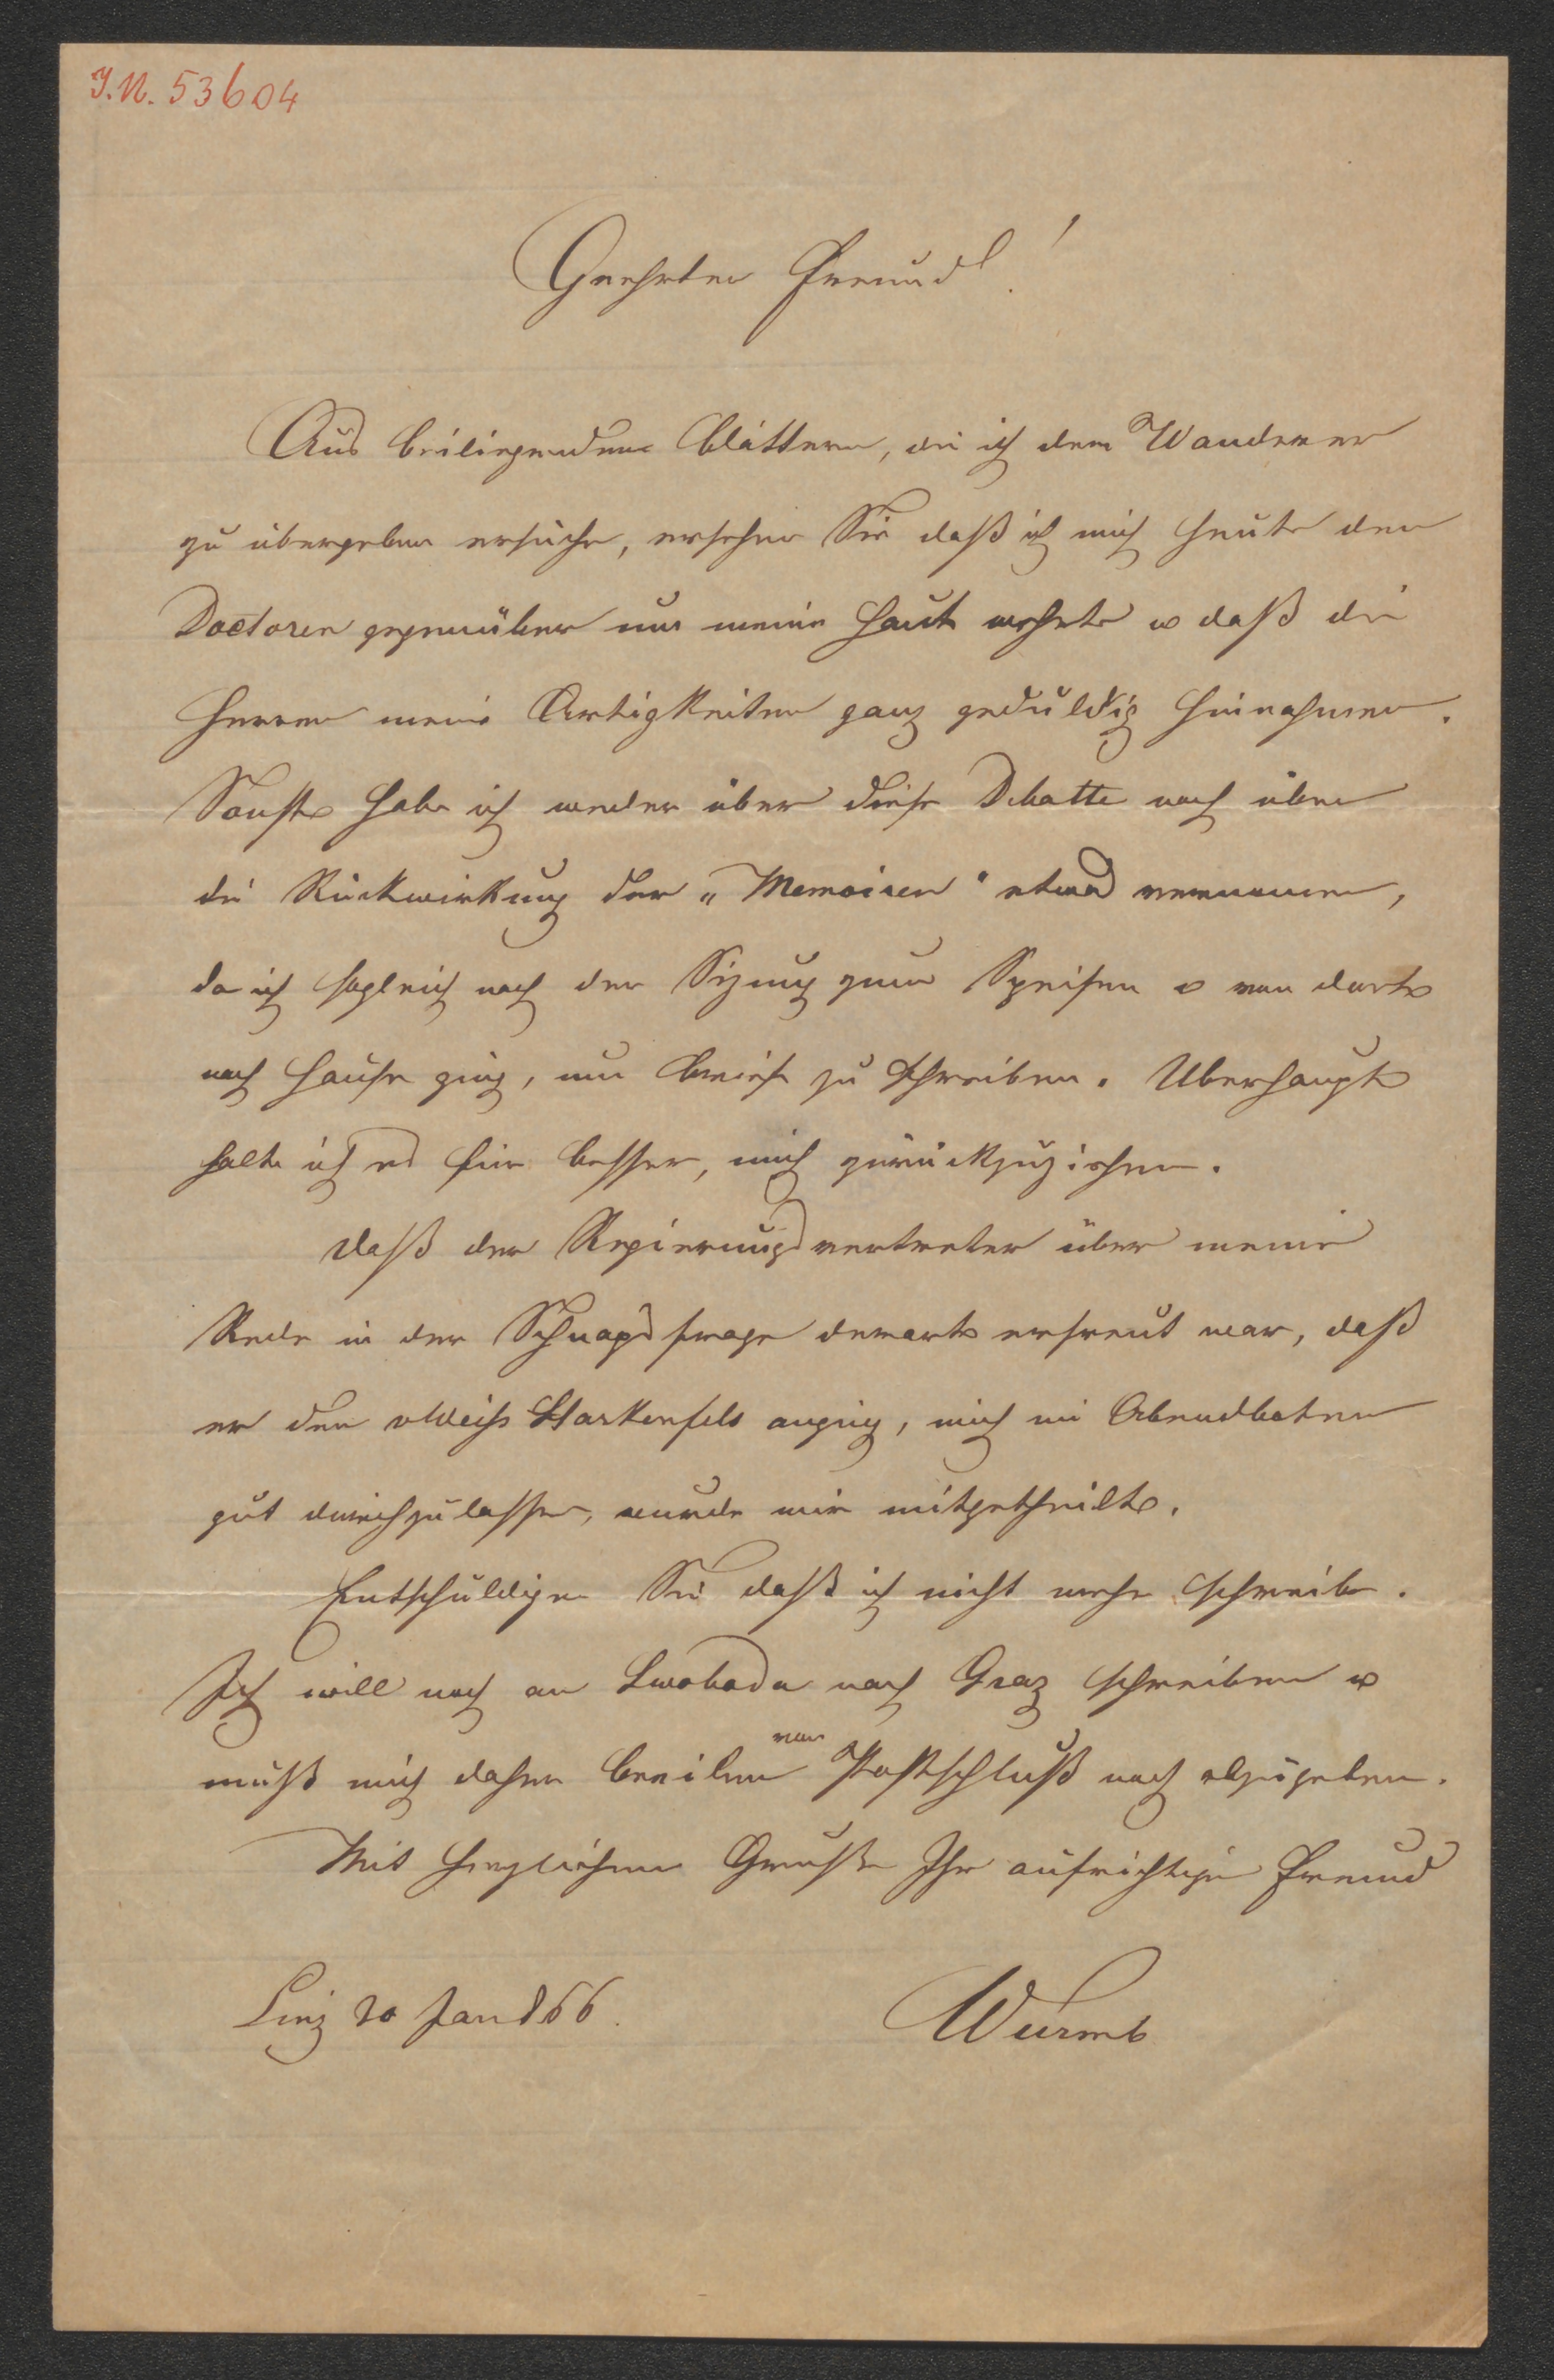 I.N. 53604
Geehrter Freund!
Aus beiliegenden Blättern, die ich dem Wanderer
zu übergeben ersuche, ersehen Sie daß ich mich heute den
Doctoren gegenüber um meine Haut wehrte u daß die
Herren meine Artigkeiten ganz geduldig hinnahmen.
Sonst habe ich weder über diese Debatte noch über
die Rückwirkung der „Memoiren" etwas vernommen,
da ich sogleich nach der Sizung zum Speisen u von dort
nach Hause ging, um Briefe zu schreiben. Überhaupt
halte ich es für besser, mich zurückzuziehen.
Daß der Regierungsvertreter über meine
Rede in der Schnapsfrage derart erfreut war, daß
er den v Weiß Starkenfels anging, mich im Abendboten
gut durchzulassen, wurde mir mitgetheilt.
Entschuldigen Sie daß ich nicht mehr schreibe.
Ich will noch an Swoboda nach Graz schreiben u
muß mich daher beeilen vor Postschluß noch abzugeben.
Mit herzlichem Gruße Ihr aufrichtiger Freund
Linz 20 Jan 866. Wurmb